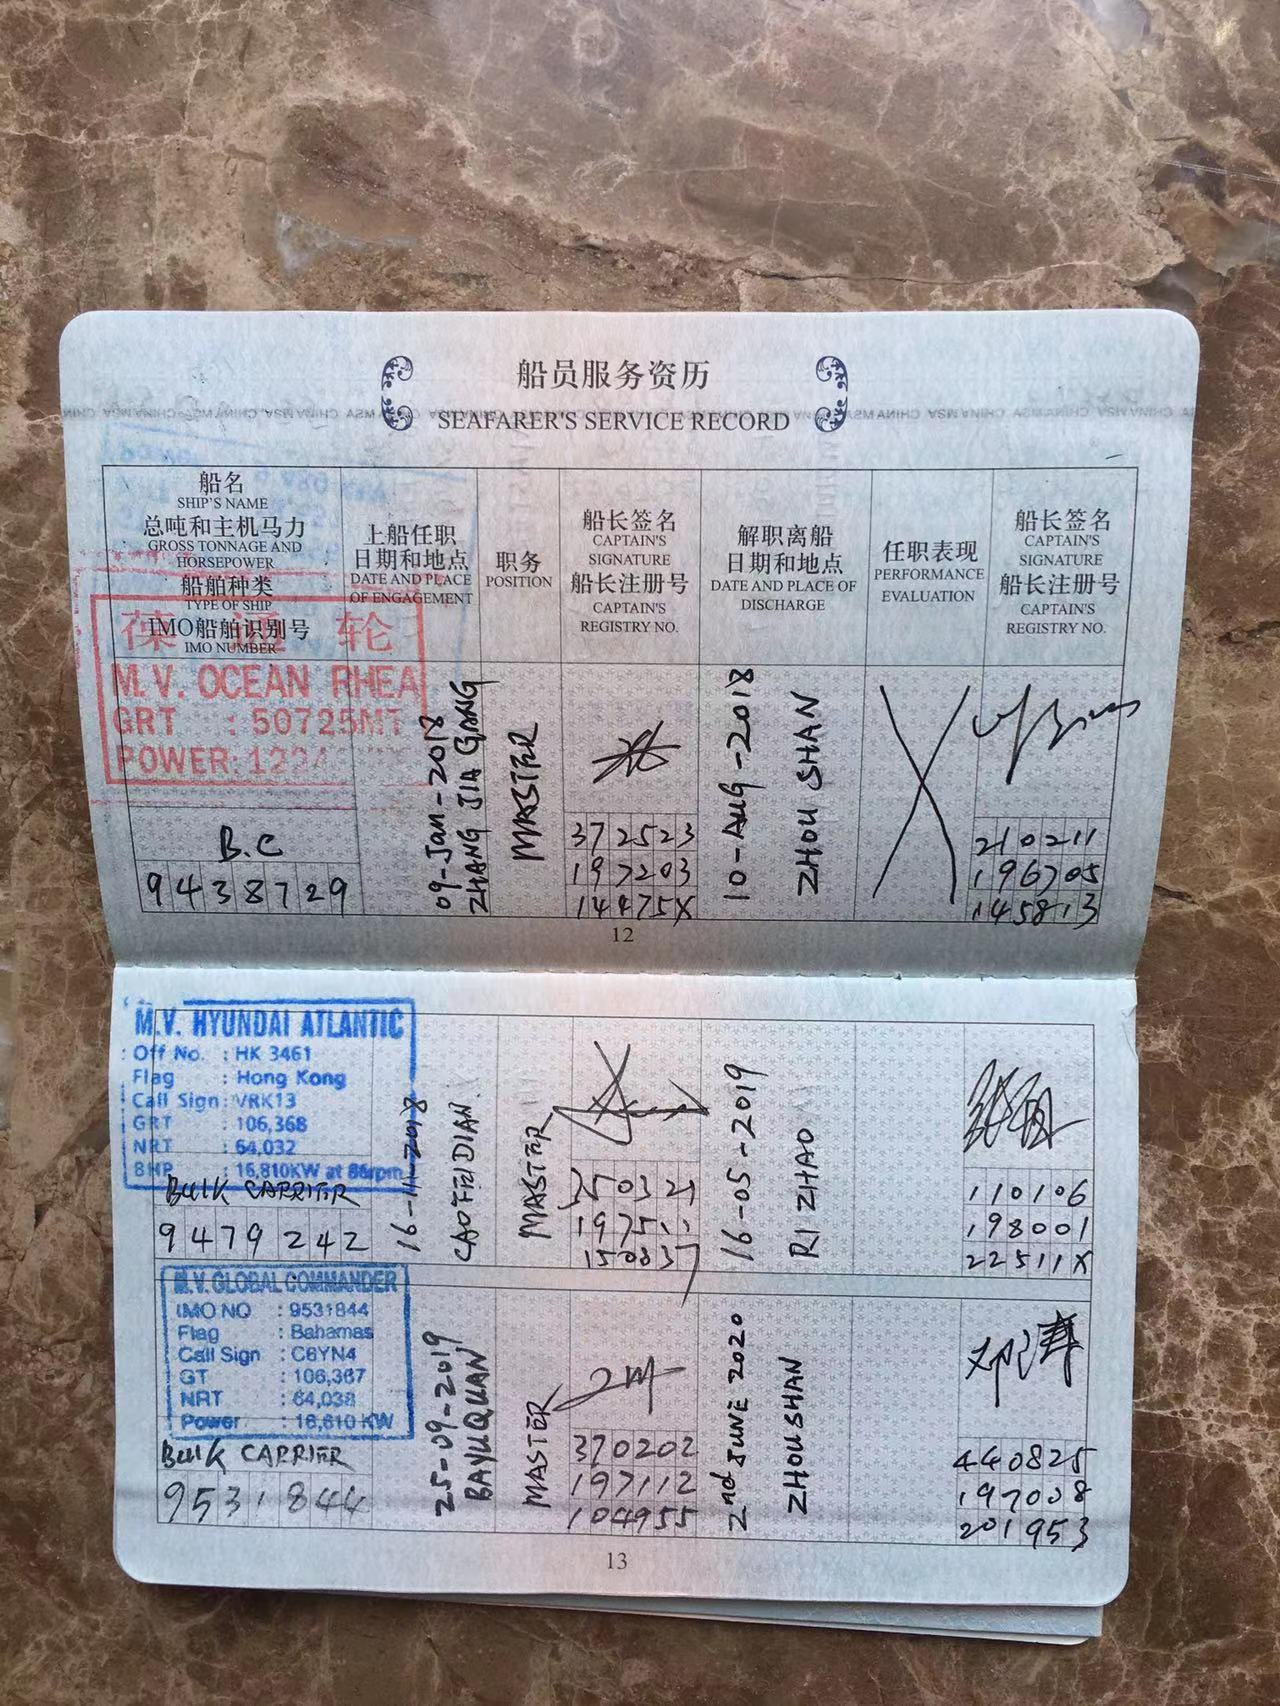 船员服务资历
SEAFARER'S SERVICE RECORD
船名
SHIP'S NAME
总吨和主机马力
GROSS TONNAGE AND
HORSEPOWER
船舶种类
TYPE OF SHIP
IMO船舶识别号
IMO NUMBER
上船任职
日期和地点
DATE AND PLACE
OF ENGAGEMENT
职务
POSITION
船长签名
CAPTAIN'S
SIGNATURE
船长注册号
CAPTAIN'S
REGISTRY NO.
解职离船
日期和地点
DATE AND PLACE OF
DISCHARGE
任职表现
PERFORMANCE
EVALUATION
船长签名
CAPTAIN'S
SIGNATURE
船长注册号
CAPTAIN'S
REGISTRY NO.
葆通轮
M.V. OCEAN RHEA
GRT : 50725MT
POWER:
B.C
9438729
09-Jan-2018
ZHANG JIA GANG
MASTER
372523
197203
14475X
10-AUG-2018
ZHOU SHAN
210211
196705
145813
12
M.V. HYUNDAI ATLANTIC
Off No. : HK 3461
Flag : Hong Kong
Call Sign : VRK13
GRT : 106,368
NRT : 64,032
BHP : 16,810KW at 86rpm
BULK CARRIER
9479242
16-11-2018
CAOFEIDIAN
MASTER
350321
197511
150837
16-05-2019
RI ZHAO
110106
198001
22511X
M.V. GLOBAL COMMANDER
IMO NO : 9531844
Flag : Bahamas
Call Sign : C6YN4
GT : 106,367
NRT : 64,038
Power : 16,610 KW
BULK CARRIER
9531844
25-09-2019
BAYUQUAN
MASTER
370202
197112
104955
2nd JUNE 2020
ZHOUSHAN
440825
197008
201953
13